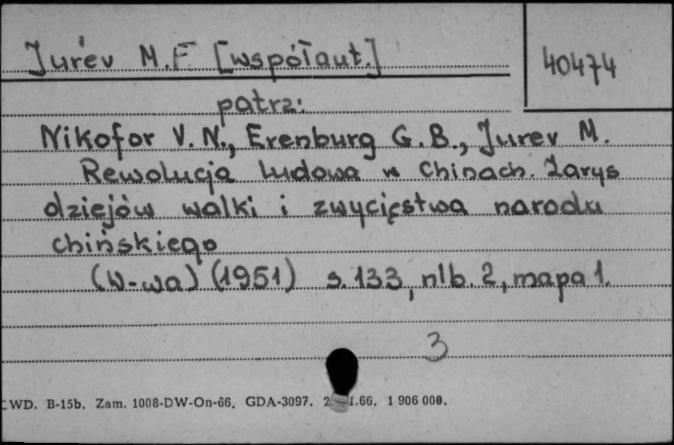 Jur'ev M.F [współaut.]
40474
patrz:
Nikofor V. N., Erenburg G. B., Jurev M.
Rewolucja ludowa w Chinach. Zarys
dziejów walki i zwycięstwa narodu
chińskiego
(W-wa) (1951) s. 133, nlb. 2, mapa 1.
3
WD. B-15b. Zam. 1008-DW-On-66. GDA-3097. 1.66. 1 906 000.